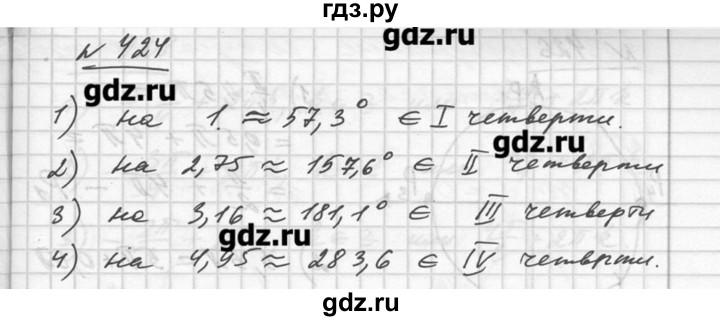 гдз.ру
№ 424
gdz.ru
gdz.ru
1) на 1 ≈ 57,3° ∈ I четверти.
gdz.ru
2) на 2,75 ≈ 157,6° ∈ II четверти
3) на 3,16 ≈ 181,1° ∈ III четверти
gdz.ru
4) на 4,95 ≈ 283,6 ∈ IV четверти.
gdz.ru